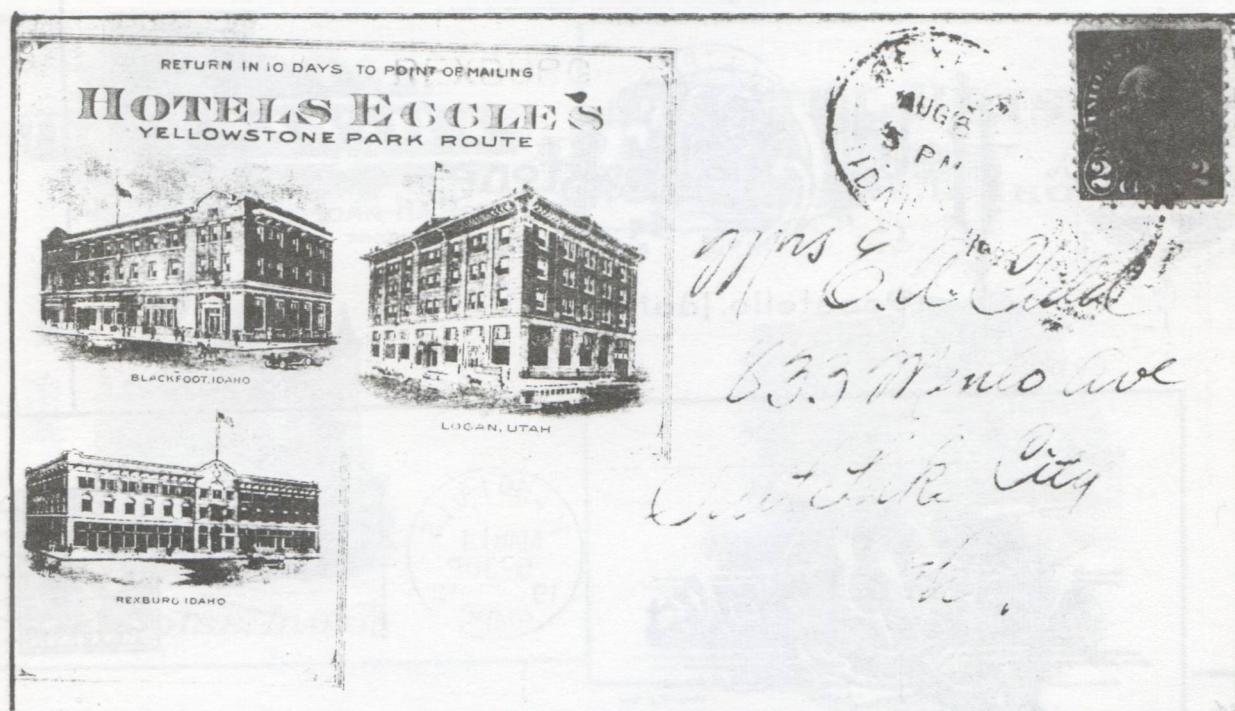 RETURN IN 10 DAYS TO POINT OF MAILING
HOTELS ECCLES
YELLOWSTONE PARK ROUTE
BLACKFOOT, IDAHO
LOGAN, UTAH
REXBURG IDAHO
AUG 8
5 PM
IDAHO
2 2
Mrs E. A.
633 Menlo Ave
Salt Lake City